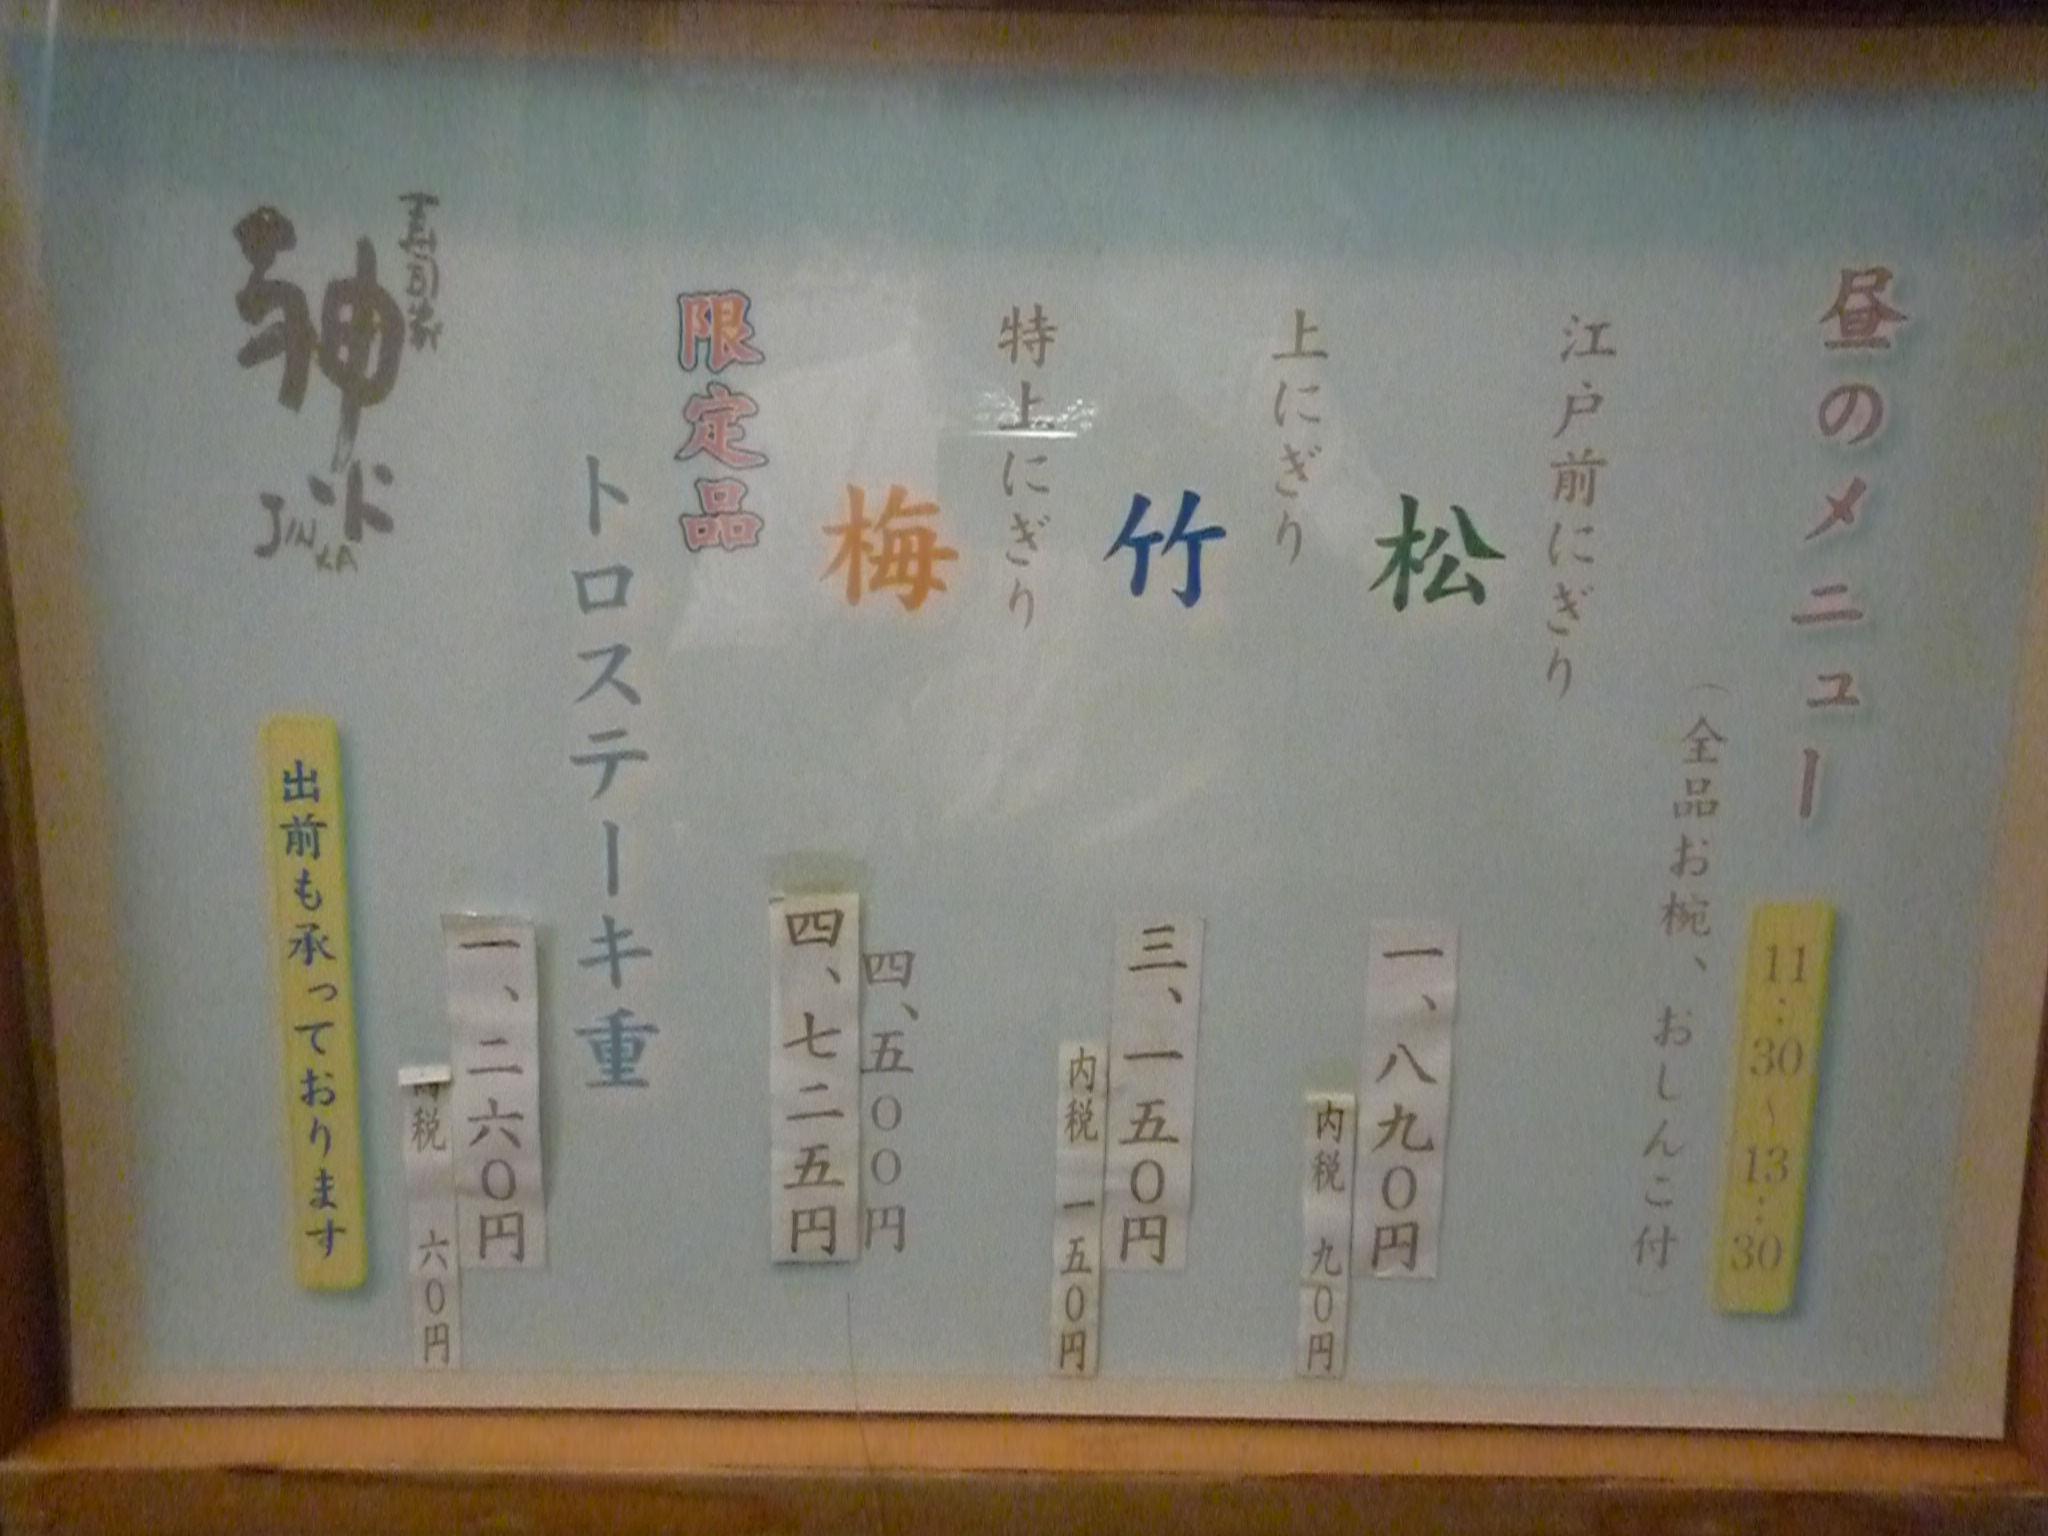 昼のメニュー
11:30~13:30
(全品お椀、おしんこ付)
江戸前にぎり
松
一、八九〇円
内税 九〇円
上にぎり
竹
三、一五〇円
内税 一五〇円
特上にぎり
梅
四、五〇〇円
四、七二五円
限定品
トロステーキ重
一、二六〇円
内税 六〇円
寿司家
JINKA
出前も承っております